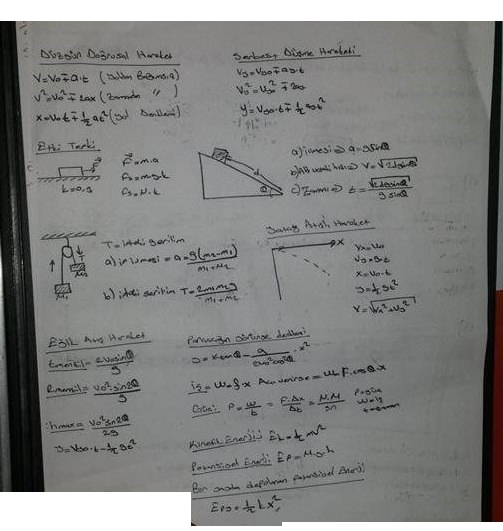 Düzgün Doğrusal Hareket
V=V₀∓a.t (Yoldan Bağımsız)
V²=V₀²∓2ax (Zamandan " )
x=V₀.t∓½at² (Yol Denklemi)
Serbest Düşme Hareketi
Vy=Vy₀∓g.t
y=Vy₀.t∓½gt²
Etki Tepki
k=0,3
F=m.a
Fs=m.g.k
Fs=N.k
a) ivmesi=> a=gsinθ
V=√2dgsinθ
t=√2dgsinθ / gsinθ
T=ipteki gerilim
a) ip ivmesi= a=g(m₂-m₁) / m₁+m₂
b) ipteki gerilim T=2m₁m₂g / m₁+m₂
T
M₂
M₁
Yatay Atış Hareketi
x
Vx=V₀
Vy=g.t
x=V₀.t
y=½gt²
V=√Vx²+Vy²
Eğik Atış Hareketi
tmenzil=2V₀sinθ / g
Rmenzil=V₀²sin2θ / g
hmax=V₀²sin²θ / 2g
y=Vy₀.t-½gt²
Parçacığın yörünge denklemi
y=xtanθ - g / 2V₀²cos²θ . x²
İş=W=F.x Açı verirse=W=F.cosθ.x
Güç: P=W / t = F.Δx / Δt
P=güç
W=iş
t=zaman
Kinetik Enerjisi Ek=½mv²
Potansiyel Enerji Ep=m.g.h
Bir yayda depolanan potansiyel Enerji
Epy=½kx²